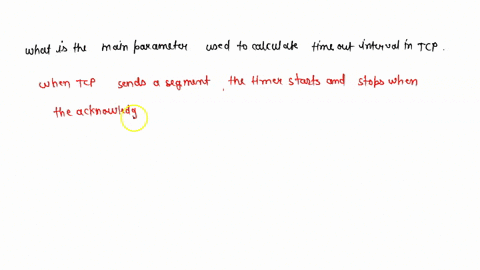 what is the main parameter used to calculate time out interval in TCP.
when TCP sends a segment, the timer starts and stops when
the acknowledg